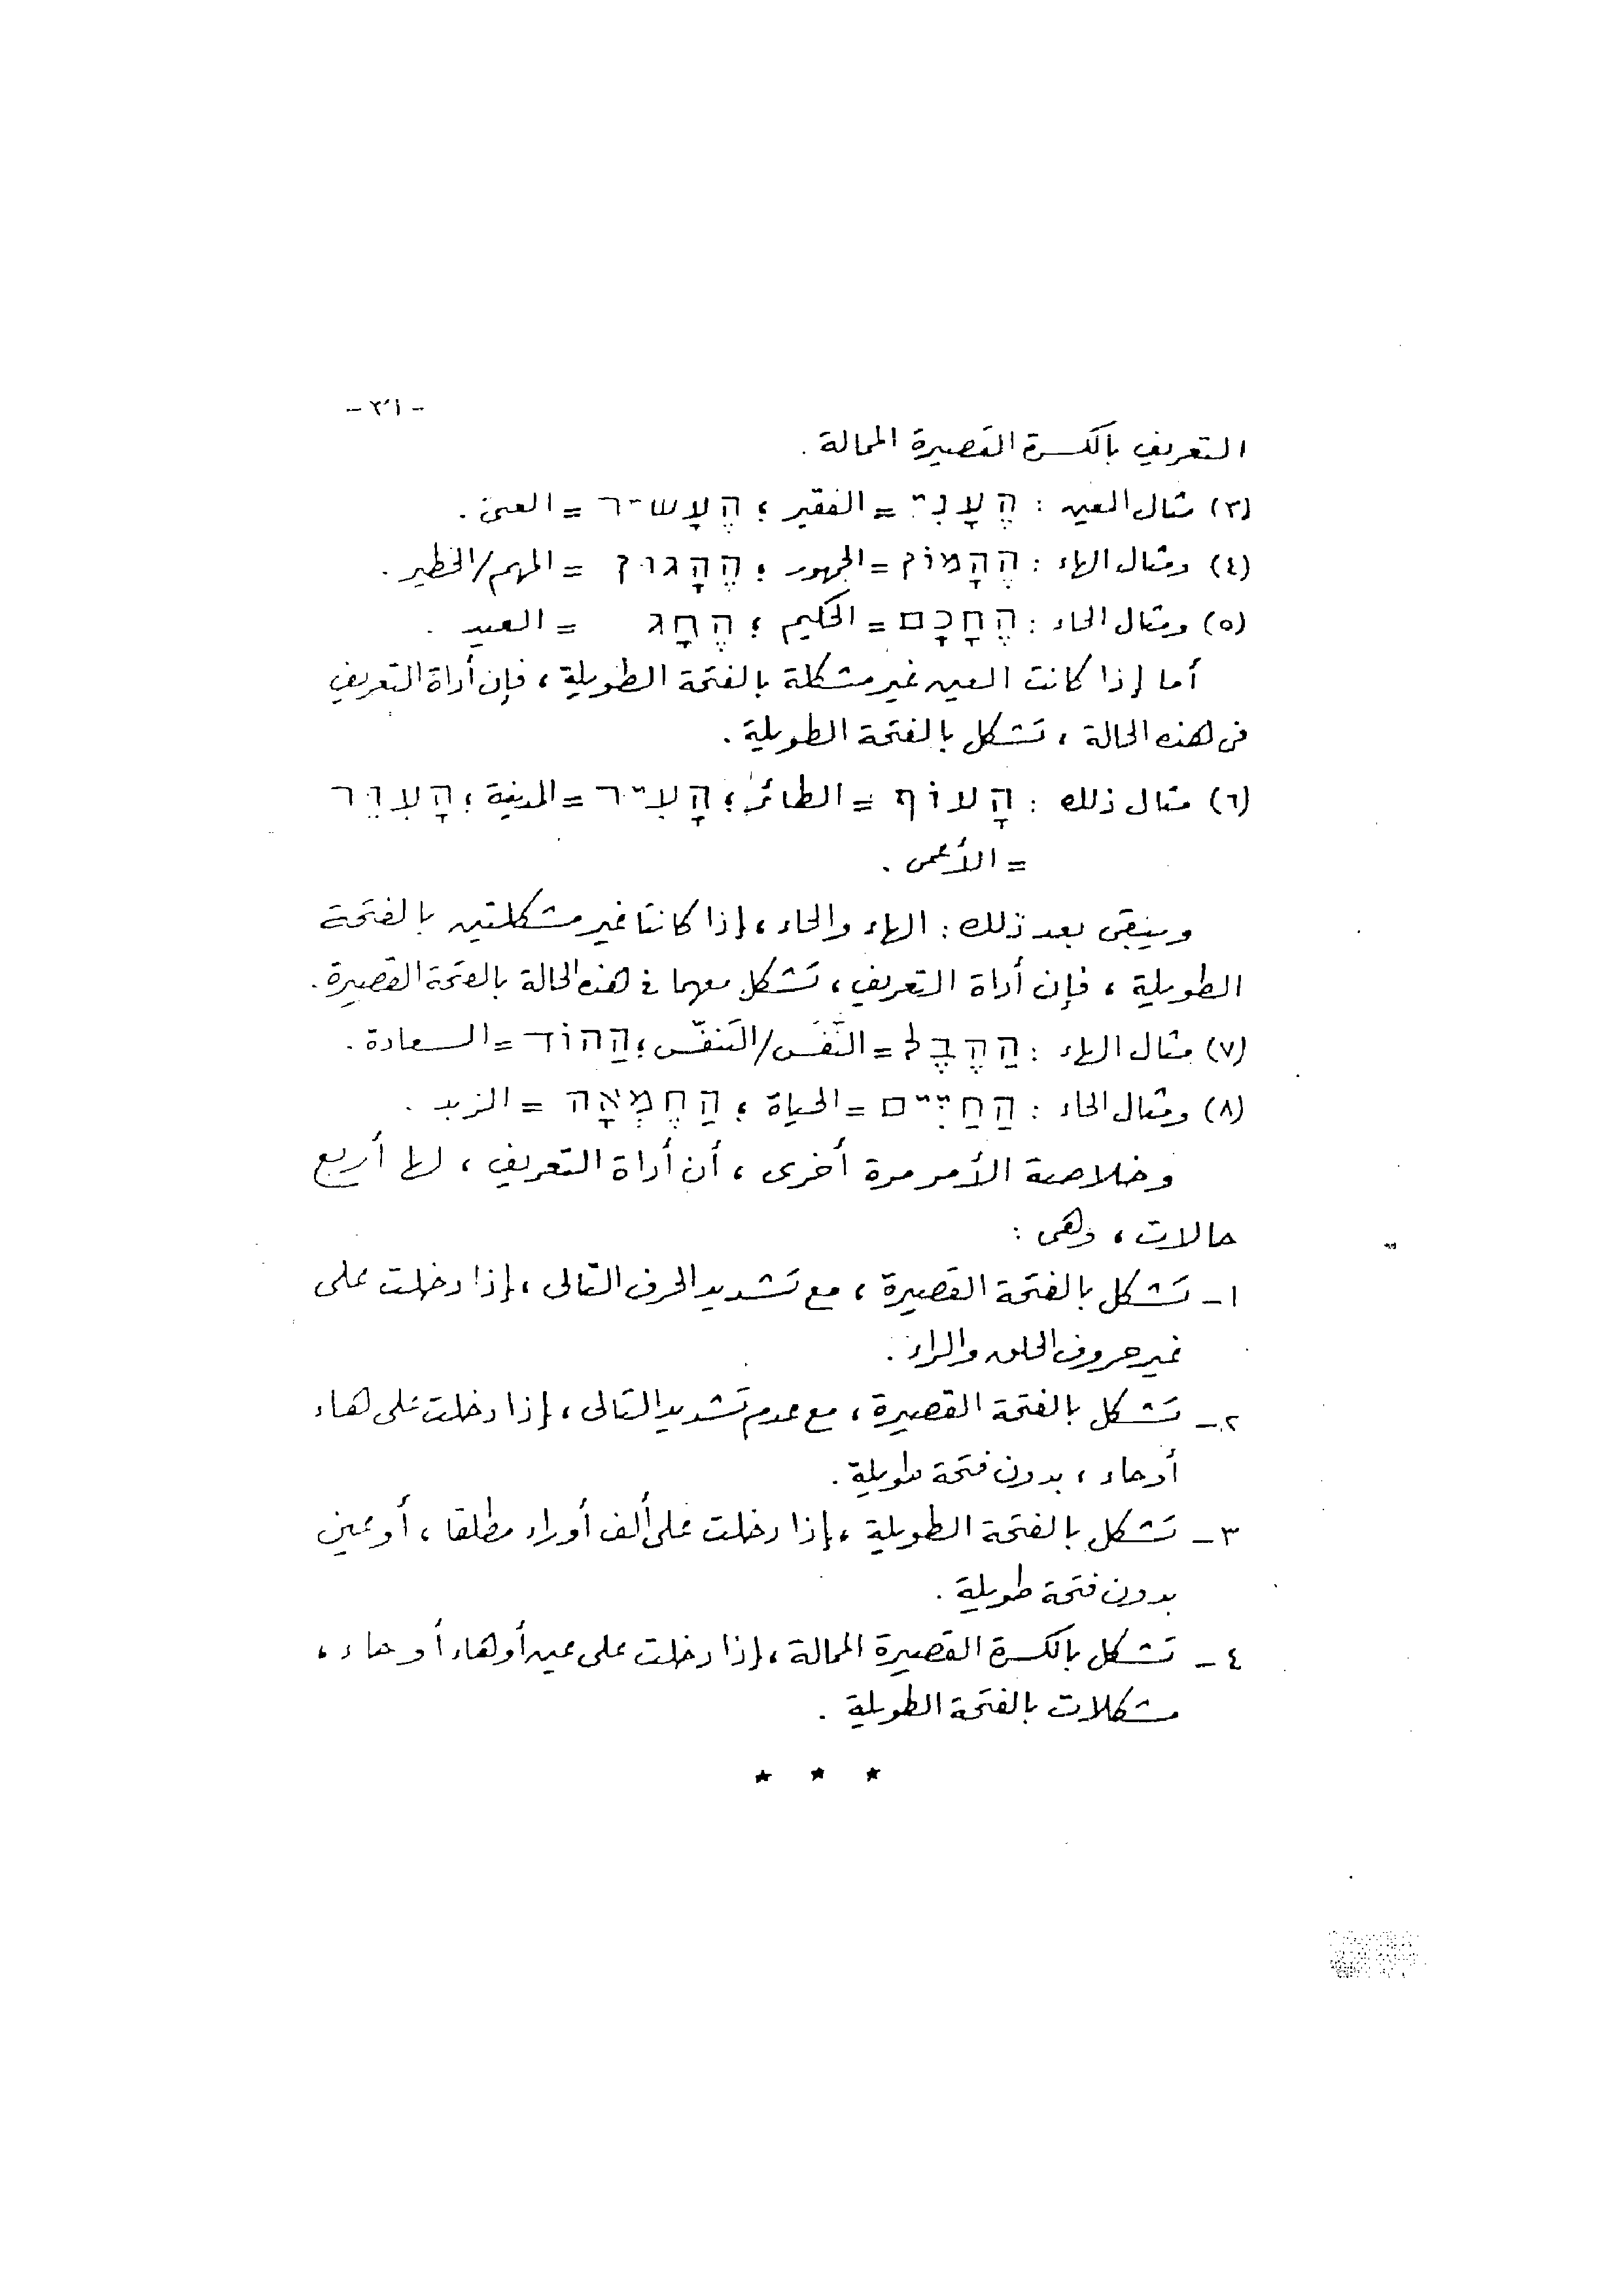 التعريف بالكسرة القصيرة الممالة .
(٣) مثال العين : הֶעָנִי = الفقير ؛ הֶעָשִׁיר = الغنى .
(٤) ومثال الهاء : הֶהָמוֹן = الجمهور ؛ הֶהָגוּן = المهم/الخطير .
(٥) ومثال الحاء : הֶחָכָם = الحكيم ؛ הֶחָג = العيد .
أما إذا كانت العين غير مشكلة بالفتحة الطويلة ، فإن أداة التعريف
فى هذه الحالة ، تشكل بالفتحة الطويلة .
(٦) مثال ذلك : הָעוֹף = الطائر ؛ הָעִיר = المدينة ؛ הָעִוֵּר
= الأعمى .
ويبقى بعد ذلك : الهاء والحاء ، إذا كانتا غير مشكلتين بالفتحة
الطويلة ، فإن أداة التعريف ، تشكل معهما فى هذه الحالة بالفتحة القصيرة .
(٧) مثال الهاء : הַהֶבֶל = النَّفَس/التنفّس ؛ הַהוֹד = السعادة .
(٨) ومثال الحاء : הַחַיִּים = الحياة ؛ הַחֶמְאָה = الزبد .
وخلاصة الأمر مرة أخرى ، أن أداة التعريف ، لها أربع
حالات ، وهى :
١ - تشكل بالفتحة القصيرة ، مع تشديد الحرف التالى ، إذا دخلت على
غير حروف الحلق والراء .
٢ - تشكل بالفتحة القصيرة ، مع عدم تشديد التالى ، إذا دخلت على هاء
أو حاء ، بدون فتحة طويلة .
٣ - تشكل بالفتحة الطويلة ، إذا دخلت على ألف أو راء مطلقا ، أو عين
بدون فتحة طويلة .
٤ - تشكل بالكسرة القصيرة الممالة ، إذا دخلت على عين أو هاء أو حاء ،
مشكلات بالفتحة الطويلة .
* * *